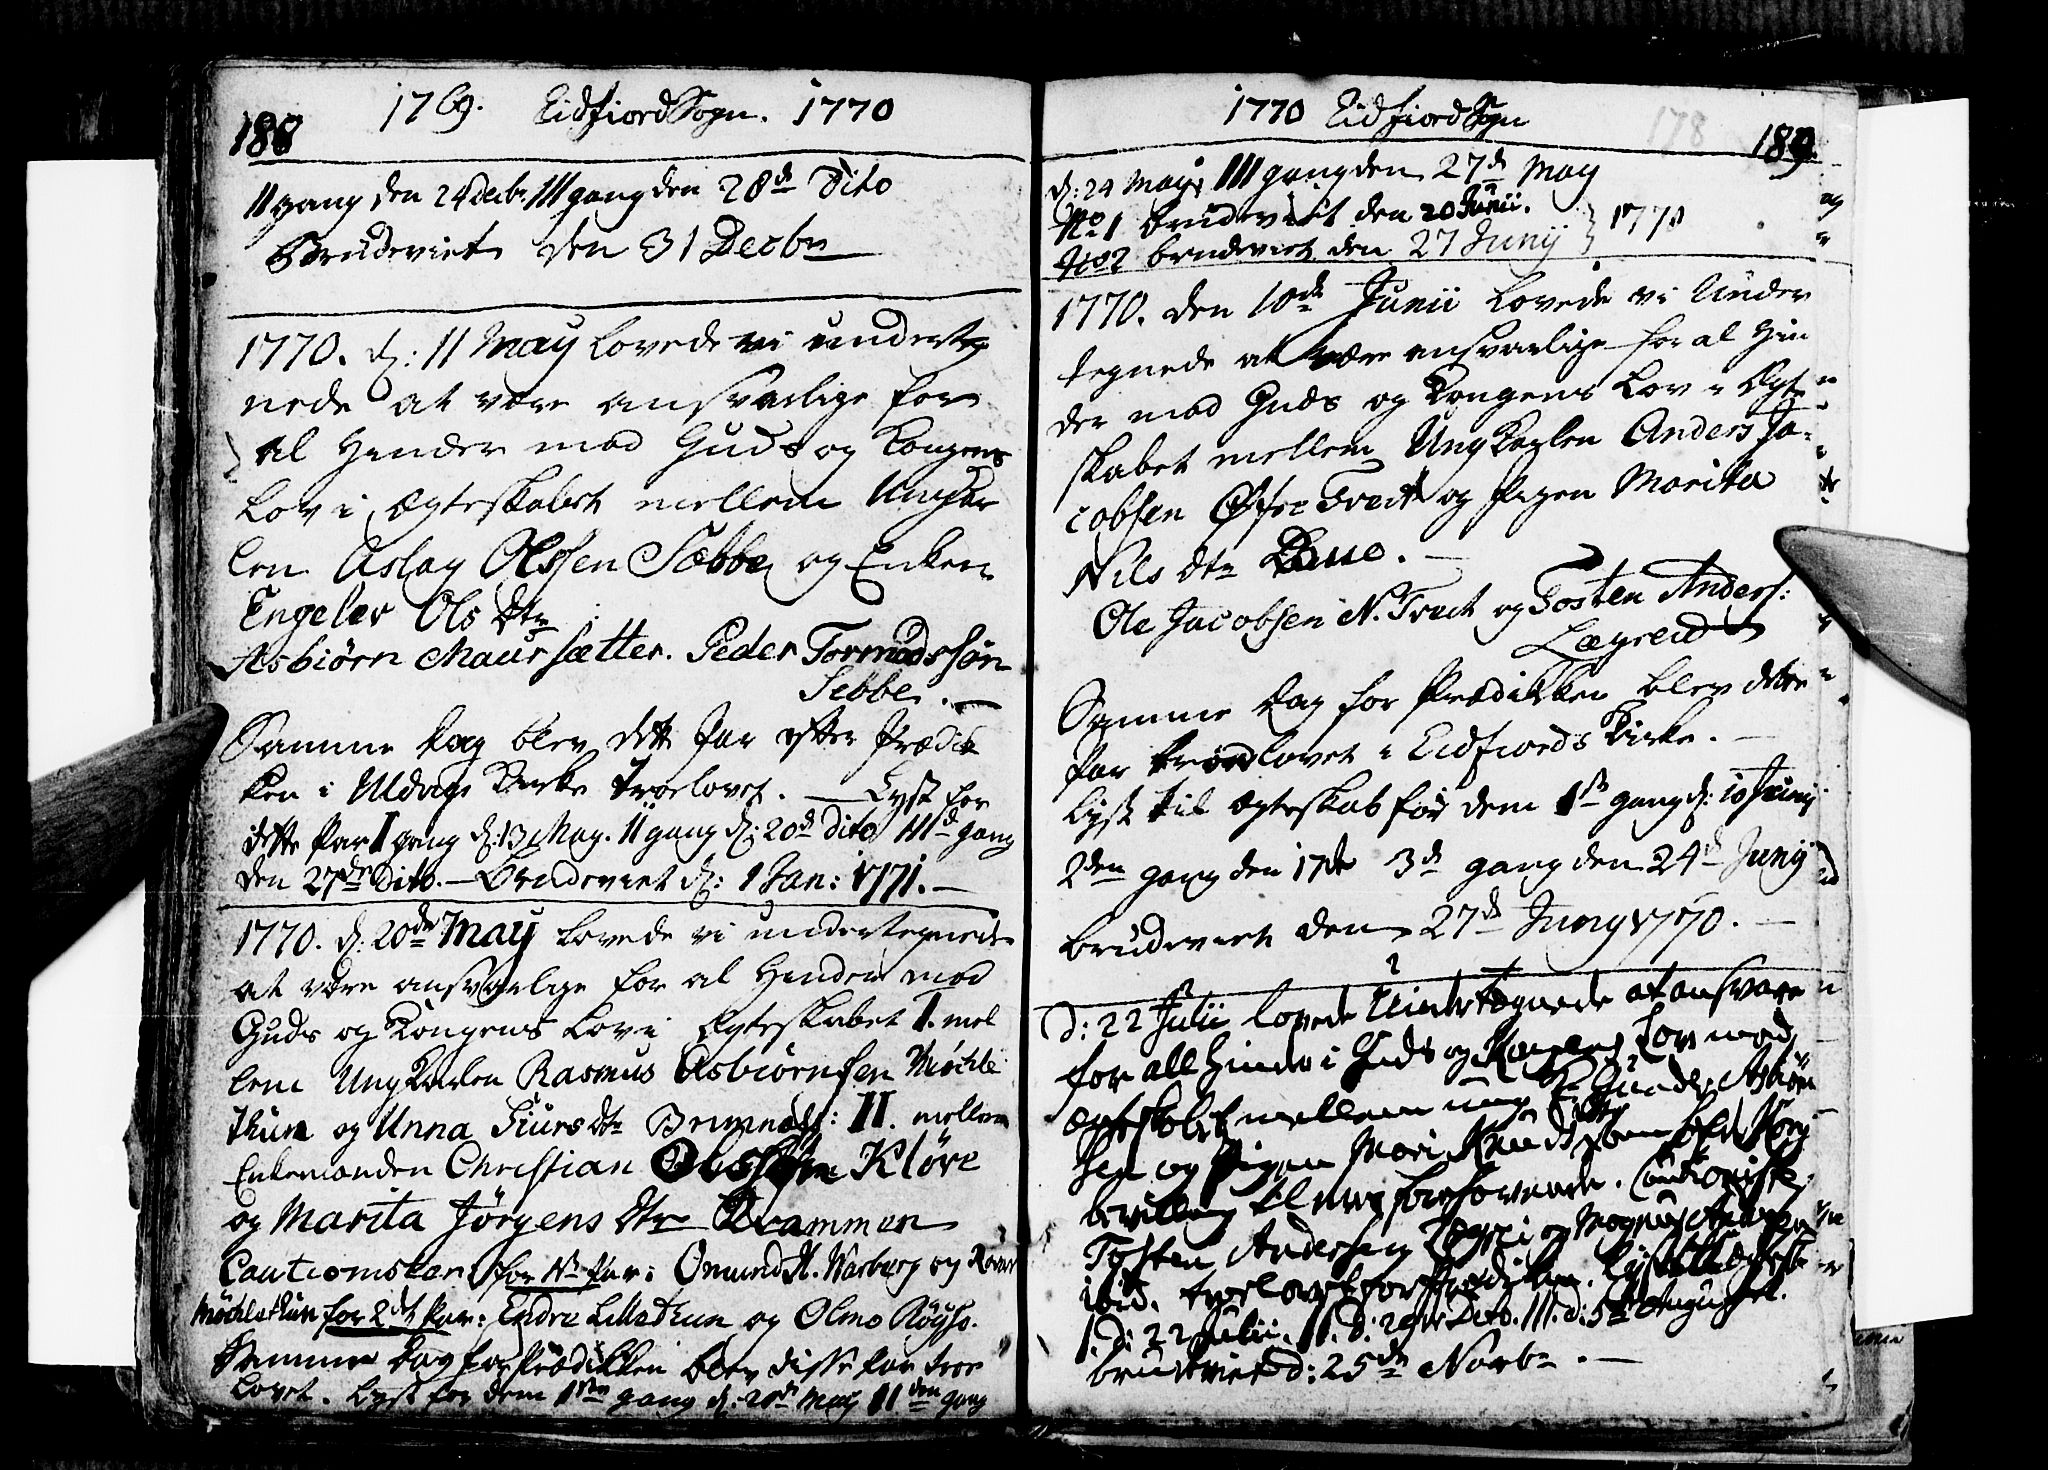 188 1769. Eidfiord Sogn. 1770
II gang den 24 Decbr. III gang den 28de Dito
Brudeviet den 31 Decbr
1770. d: 11 May lovede vi underteg
nede at være ansvarlige for
al Hinder mod Guds og Kongens
Lov i Ægteskabet mellem Ungkar
len Aslag Olssen Sæbbe og Enken
Engelev Ols dtr
Asbiørn Maursætter. Peder Tormodssøn
Sebbe.
Samme Dag blev dette Par efter Prædik
ken i Uldvigs Kirke Troelovet. Lyst for
dette Par I gang d: 13 May. II gang d: 20de Dito IIId gang
den 27de Dito. Brudeviet d: 1 Jan: 1771.
1770. d: 20de May lovede vi undertegnede
at være ansvarlige for al Hinder mod
Guds og Kongens Lov i Ægteskabet I. mel
lem Ungkarlen Rasmus Asbiørnsen Møckle
thun og Unna Siurs dtr Brimnæs: II. mellem
Enkemanden Christian Olssøn Kløve
og Marita Jørgens dtr Qvammen
Cautionister for N1 Par: Omund H. Warberg og
Møcklethun for 2det Par: Endre Lillethun og Olmo Røyso.
Samme Dag for Prædikken blev disse Par troe
lovet. Lyst for dem 1ste gang d: 20de May IIden gang
1770 Eidfiord Sogn 178 189
d: 24 Maji III gang den 27de May
No 1 brudeviet den 20 Junii.
No 2 brudeviet den 27 Junij } 1770
1770. den 10de Junii lovede vi Under
tegnede at være ansvarlige for al Hin
der mod Guds og Kongens Lov i Ægte
skabet mellem Ungkarlen Anders Ja-
cobsen Øfre Tveit og Pigen Marita
Nils dtr
Ole Jacobsen N. Tveit og Tosten Anders:
Lægreid
Samme Dag for Prædikken blev dette
Par troelovet i Eidfiords Kirke.
Lyst til Ægteskab for dem 1ste gang d: 10 Junij
2den gang den 17de 3de gang den 24de Junij
brudeviet den 27de Junij 1770.
d: 22 Julii lovede Undertegnede at ansvare
for all Hinder i Guds og Kongens Lov mod
ægteskabet mellem ung K. Asbiørn
sen og Pigen Mari Knuds dtr som efter Kong
bevilling
Tosten Andersen Legrei og Magnus Anders
ibid. troelovet for Prædiken. Lyst
I. d: 22 Julii. II. d: 29de Dito. III. d: 5te Augusti.
brudeviet d: 25de Novbr.